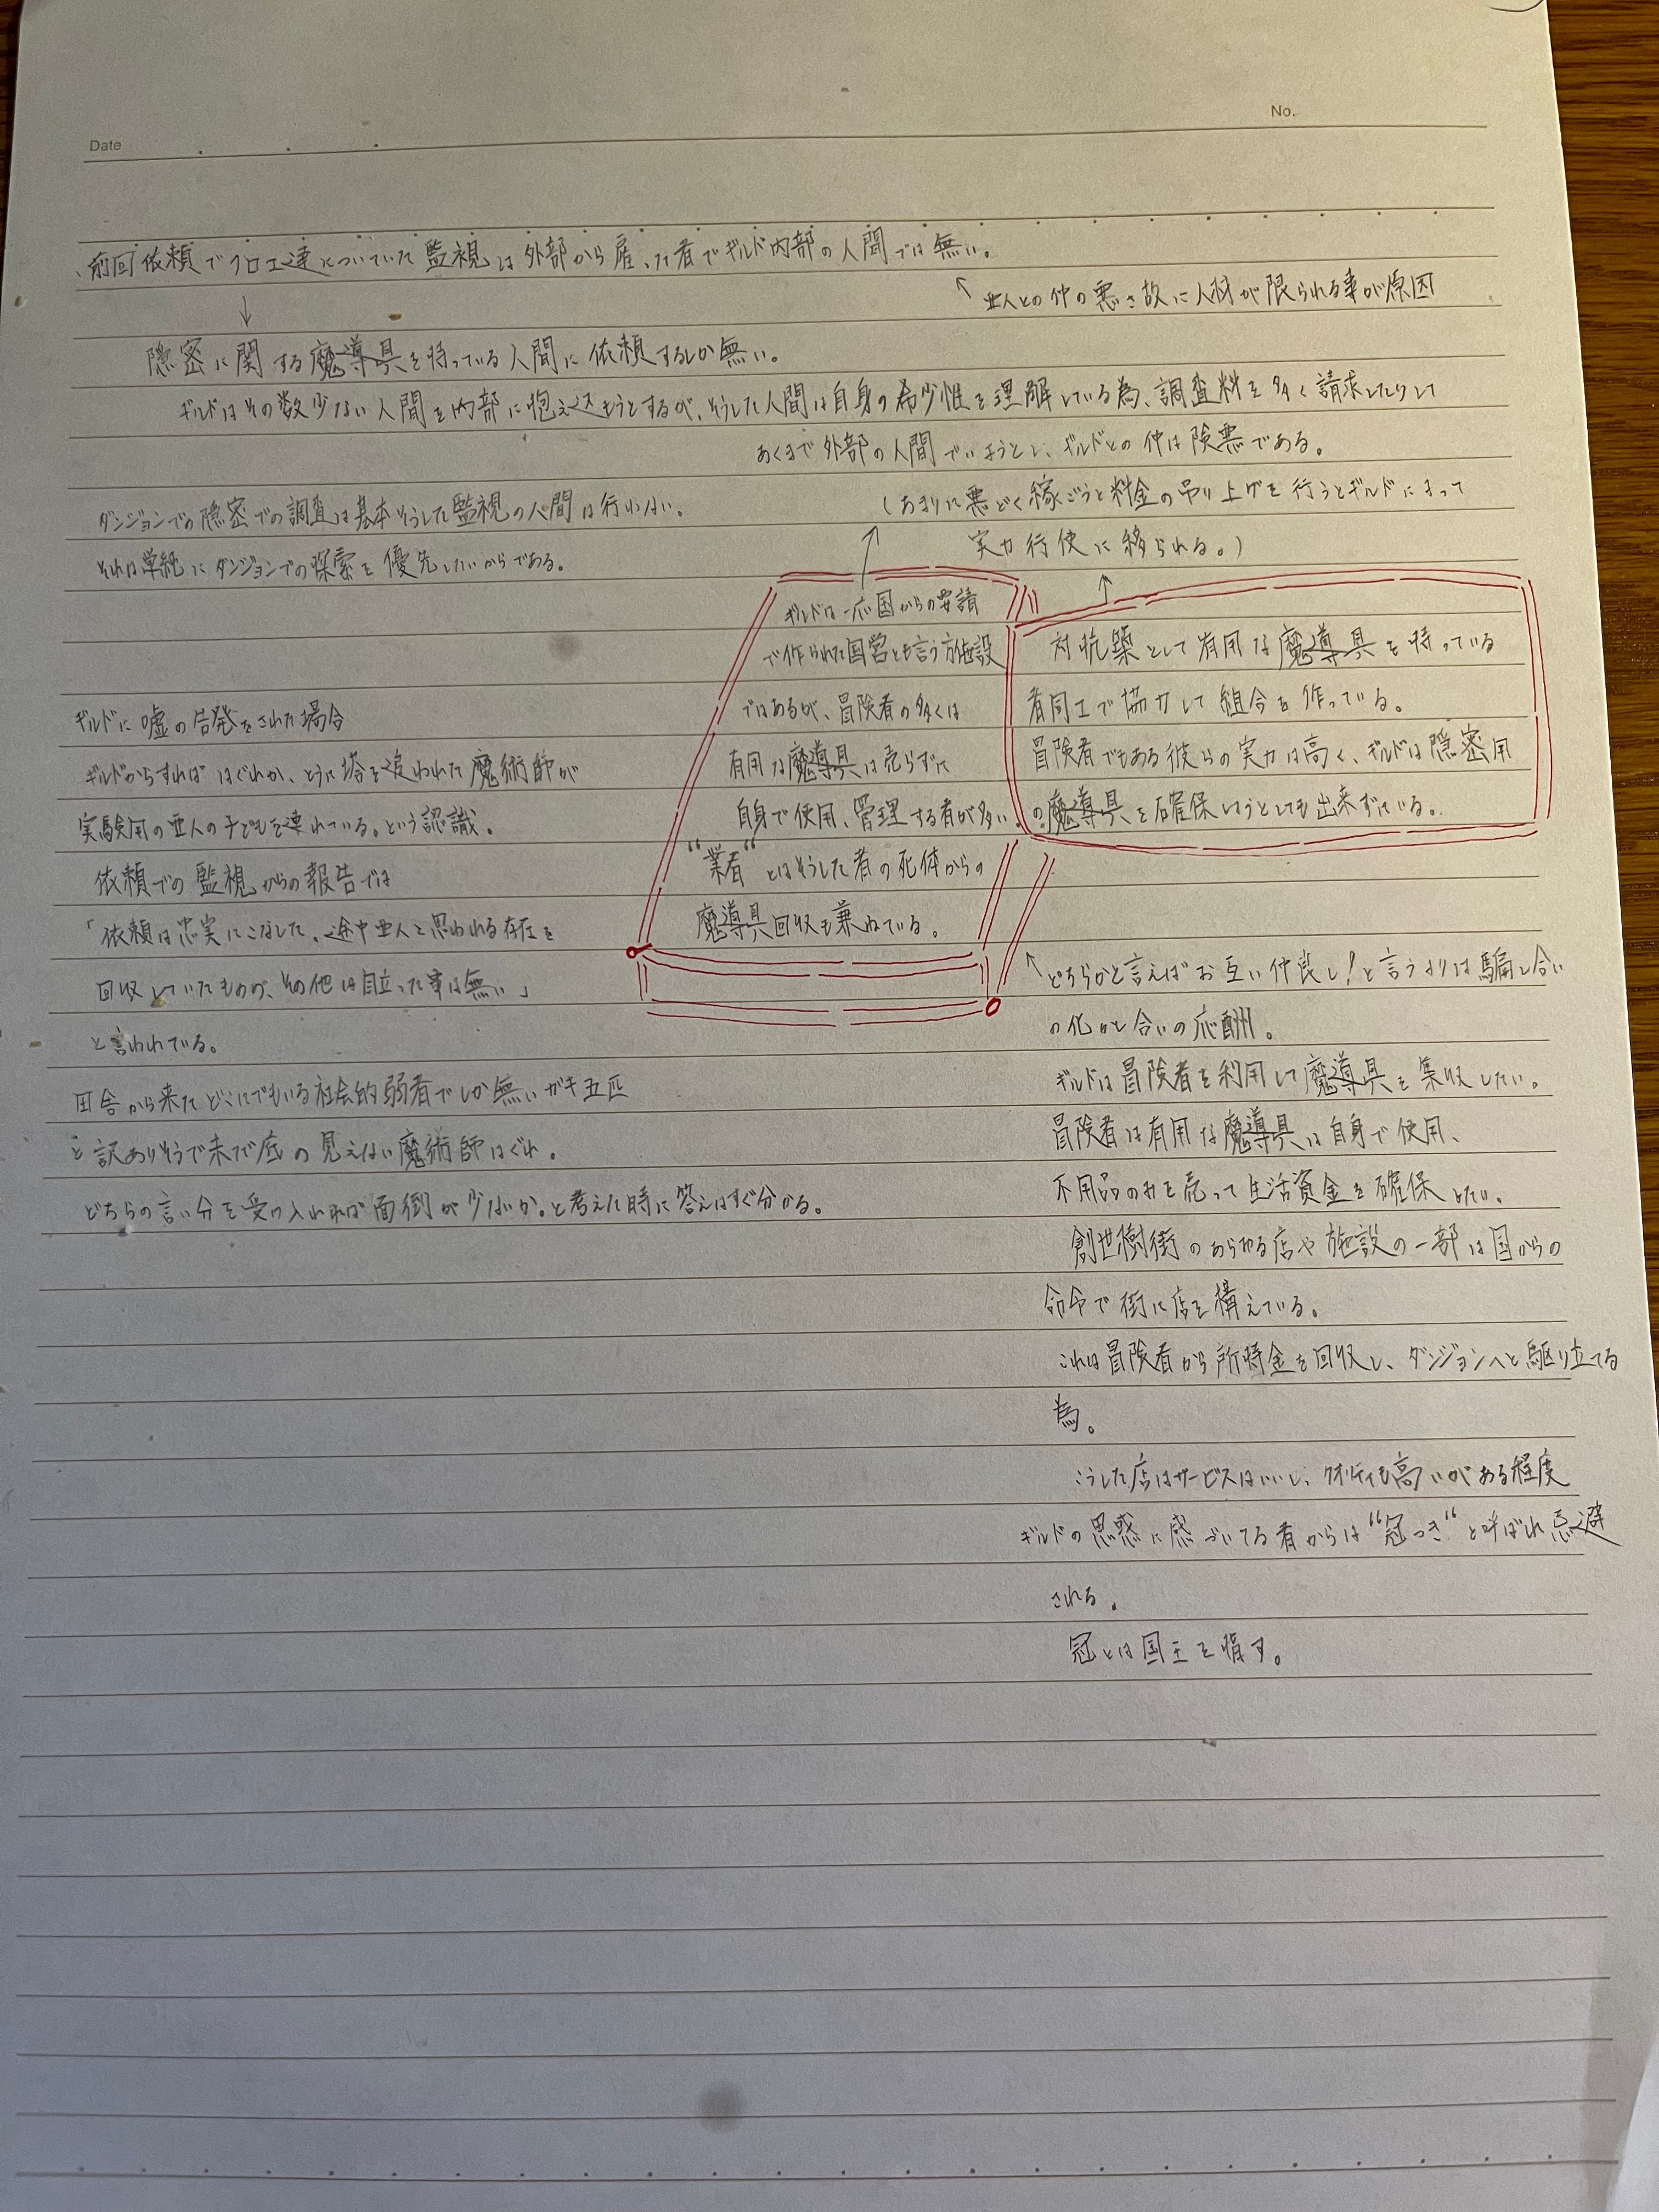 Date
No.
、前回依頼でクロエ達についていた監視は外部から雇った者でギルド内部の人間では無い。
↖ 亜人との仲の悪さ故に人材が限られる事が原因
↓
隠密に関する魔導具を持っている人間に依頼するしか無い。
ギルドはその数少ない人間を内部に抱え込もうとするが、そうした人間は自身の希少性を理解している為、調査料を多く請求したりして
あくまで外部の人間でいようとし、ギルドとの仲は険悪である。
(あまりに悪どく稼ごうと料金の吊り上げを行うとギルドによって
実力行使に移られる。)
ダンジョンでの隠密での調査は基本そうした監視の人間は行わない。
それは単純にダンジョンでの探索を優先したいからである。
ギルドは一応国からの要請
で作られた国営とも言う方施設
ではあるが、冒険者の多くは
有用な魔導具は売らずに
自身で使用、管理する者が多い。
“業者“とはそうした者の死体からの
魔導具回収も兼ねている。
対抗築として有用な魔導具を持っている
者同士で協力して組合を作っている。
冒険者でもある彼らの実力は高く、ギルドは隠密用
の魔導具を確保しようとしても出来ずにいる。
ギルドに嘘の告発をされた場合
ギルドからすれば はぐれか、とうに塔を追われた魔術師が
実験用の亜人の子どもを連れている。という認識。
依頼での監視からの報告では
「依頼は忠実にこなした。途中亜人と思われる存在を
回収していたものの、その他は目立った事は無い」
と言われている。
田舎から来たどこにでもいる社会的弱者でしか無いガキ五匹
と訳ありそうで未だ底の見えない魔術師はぐれ。
どちらの言い分を受け入れれば面倒が少ないか。と考えた時に答えはすぐ分かる。
↖ どちらかと言えばお互い仲良し!と言うよりは騙し合い
の化かし合いの応酬。
ギルドは冒険者を利用して魔導具を集収したい。
冒険者は有用な魔導具は自身で使用、
不用品のみを売って生活資金を確保したい。
創世樹街のあらゆる店や施設の一部は国からの
命令で街に店を構えている。
これは冒険者から所持金を回収し、ダンジョンへと駆り立てる
為。
こうした店はサービスはいいし、クオリティも高いがある程度
ギルドの思惑に感づいてる者からは“冠つき“と呼ばれ忌避
される。
冠とは国王を指す。